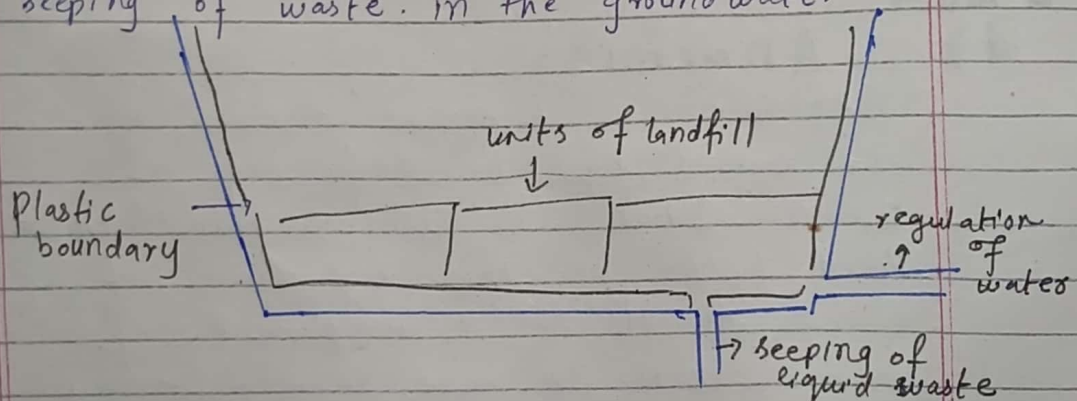 seeping of waste. in the groundwater
units of landfill
Plastic
boundary
regulation
of
water
seeping of
liquid waste